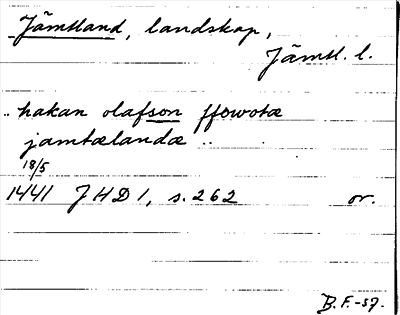 Jämtland, landskap,
Jämtl. l.
.. hakan olafson ffowotæ
jamtælandæ ..
18/5
1441 JHD 1, s. 262 or.
B.F.-57.